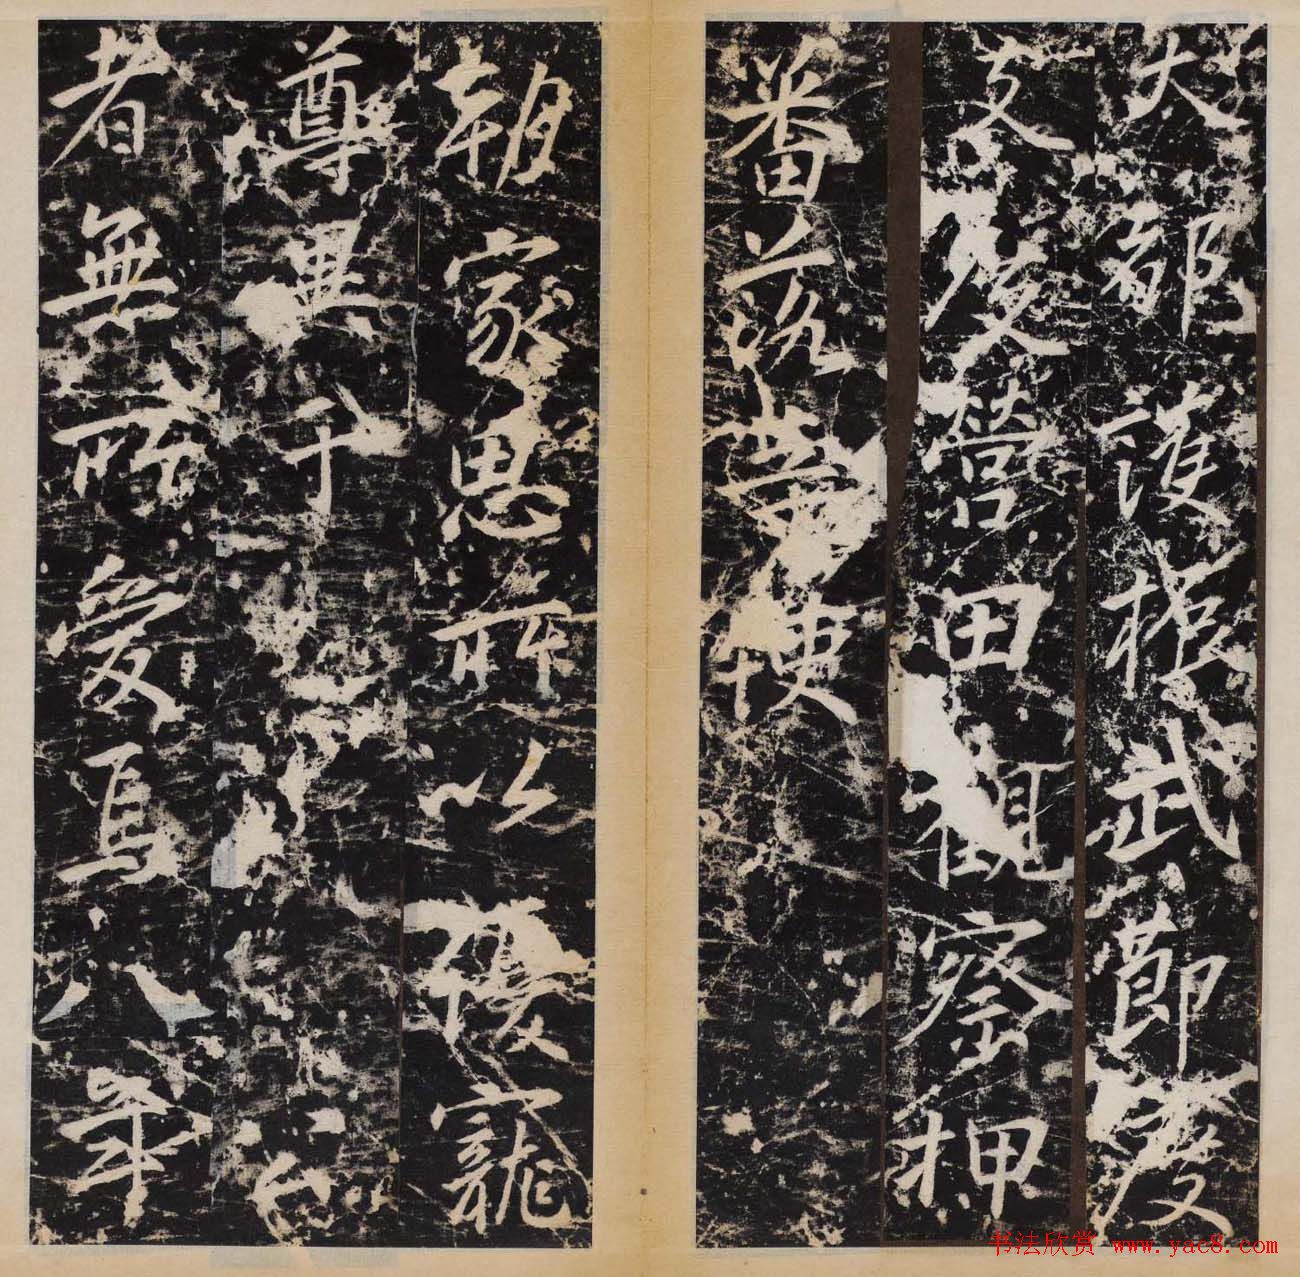 大都護振武節度
支度營田觀察押
蕃落等使
朝家恩所以優寵
尊異于
者無所愛焉八年
书法欣赏 www.yac8.com